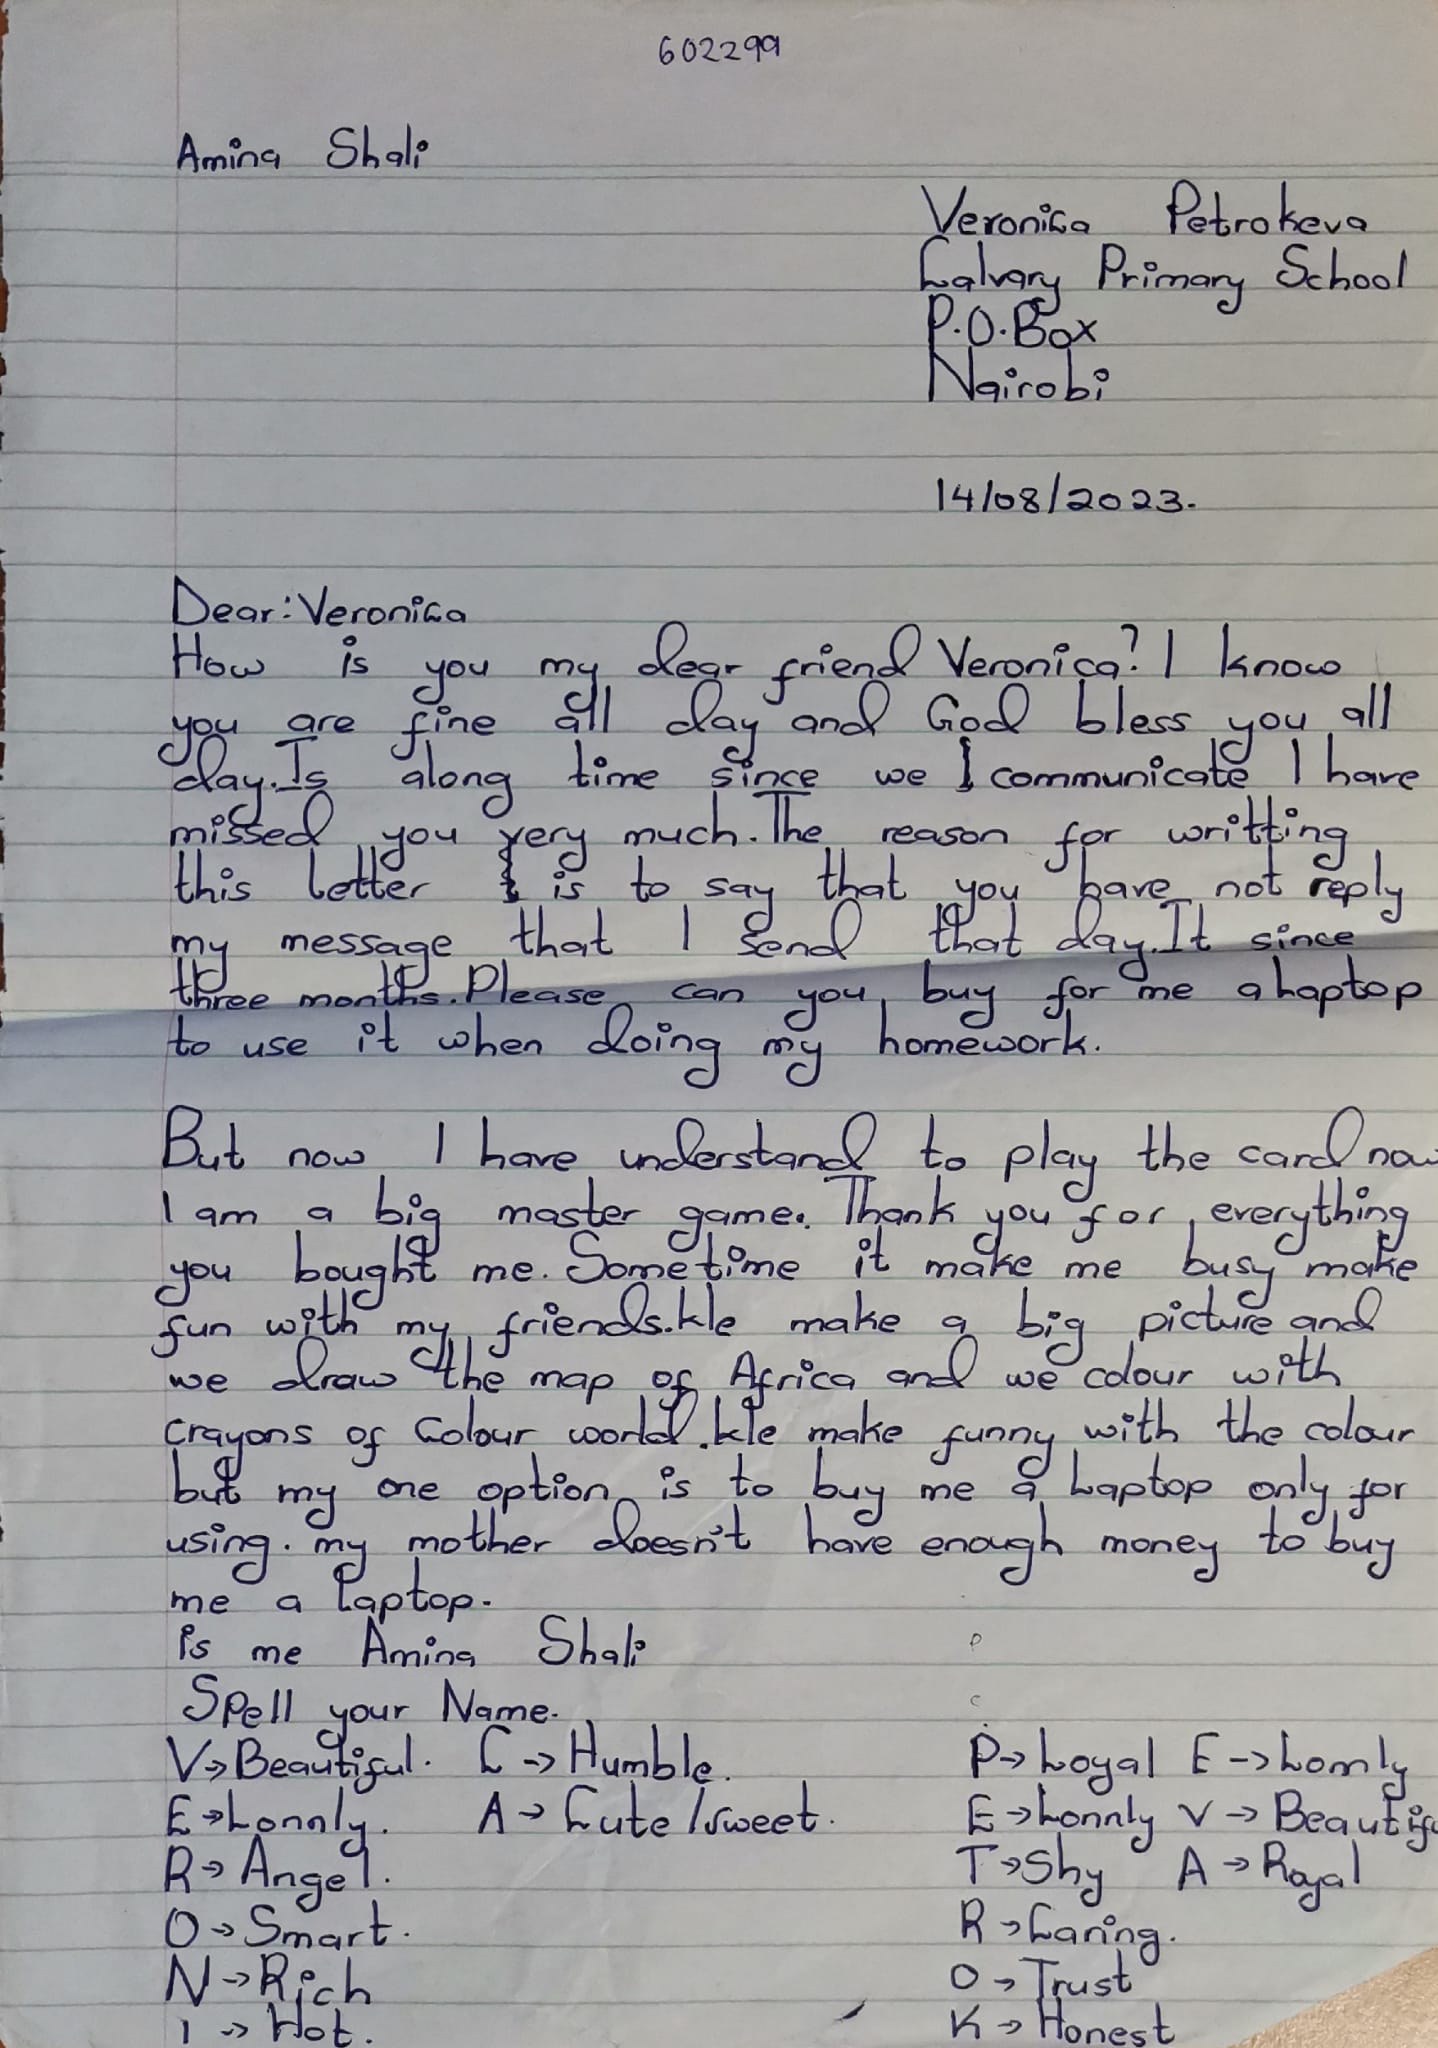 602299
Amina Shali
Veronica Petrokeva
Calvary Primary School
P.O.Box
Nairobi
14/08/2023.
Dear:Veronica
How is you my dear friend Veronica? I know
you are fine all day and God bless you all
day. Is along time since we communicate I have
missed you very much. The reason for writting
this letter is to say that you have not reply
my message that I send that day. It since
three months. Please can you buy for me a Laptop
to use it when doing my homework.
But now I have understand to play the card now
I am a big master game. Thank you for everything
you bought me. Sometime it make me busy make
fun with my friends. We make a big picture and
we draw the map of Africa and we colour with
crayons of Colour world. We make funny with the colour
but my one option is to buy me a Laptop only for
using. my mother doesn't have enough money to buy
me a laptop.
is me Amina Shali
Spell your Name.
V→Beautiful. C→Humble. P→Loyal E→Lomly
E→Lonnly. A→Cute/sweet. E→Lonnly V→Beautifu
R→Angel. T→Shy A→Royal
O→Smart. R→Caring.
N→Rich O→Trust
I→Hot. K→Honest